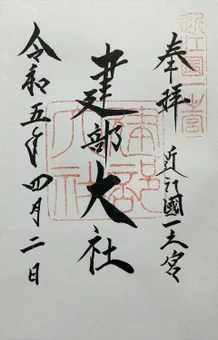 奉拝
近江國一之宮
建部大社
令和五年四月二日
近江国一之宮
建部大社